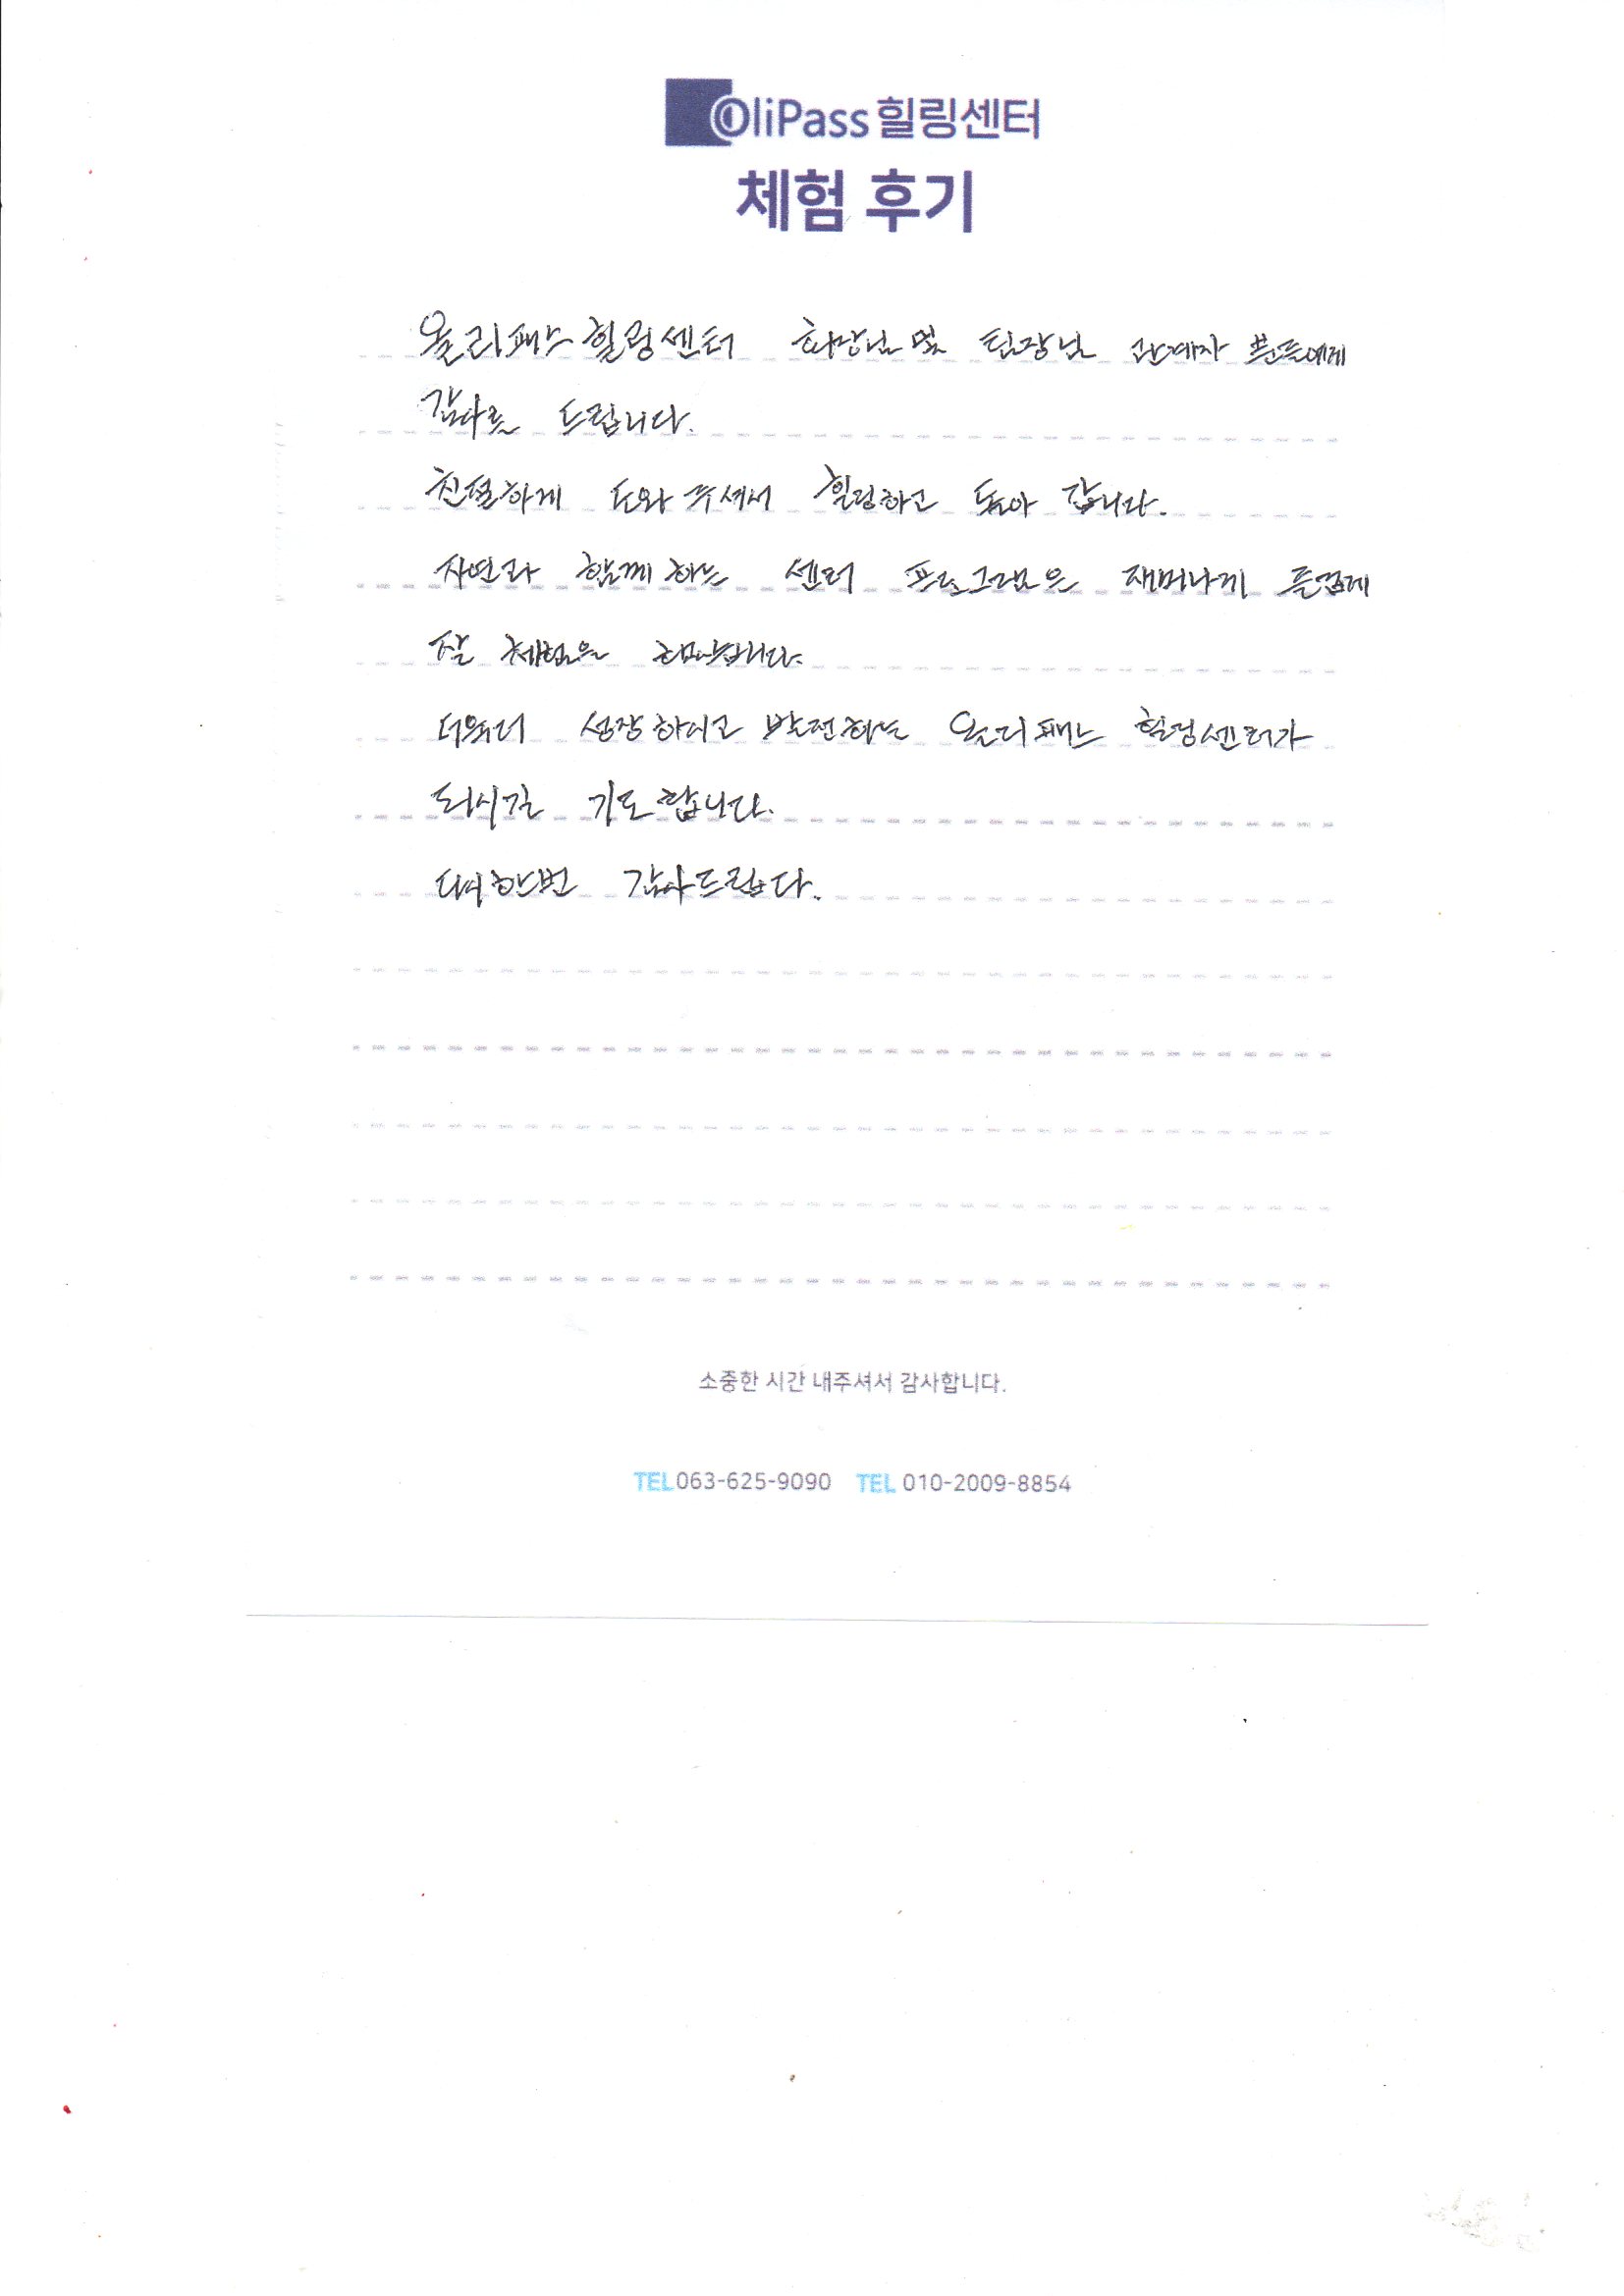 OliPass 힐링센터
체험 후기
올리패스 힐링센터 회장님 및 팀장님 관계자 분들에게
감사를 드립니다.
친절하게 도와 주셔서 힐링하고 돌아 갑니다.
자연과 함께 하는 센터 프로그램은 재미나게 즐겁게
잘 체험을 하였습니다.
더욱더 성장하시고 발전하는 올리패스 힐링센터가
되시길 기도 합니다.
다시한번 감사드립다.
소중한 시간 내주셔서 감사합니다.
TEL 063-625-9090 TEL 010-2009-8854